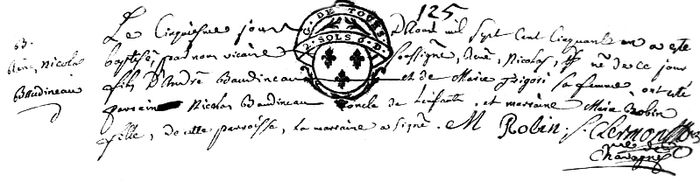 125
G. DE TOURS
2. SOLS 6. D.
63.
René, Nicolas
Baudineau
Le Cinquiesme jour D'Aout mil Sept Cent Cinquante un a esté
baptisé, par nous vicaire Soussigné, René, Nicolas, né de ce jour
fils D'André Baudineau et de Marie grigori sa femme, ont esté
parrain Nicolas Baudineau oncle de Lenfant, et marraine Marie Robin
fille, de cette parroisse, La marraine a signé. M Robin; Clermont
vic de
Chavagne